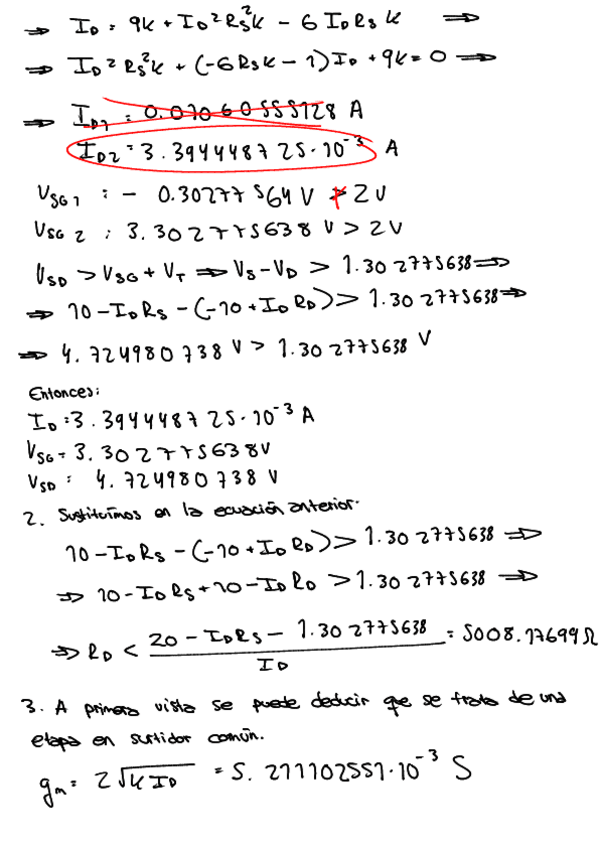 ⇒ I_D = 9k + I_D² R_S² k - 6 I_D R_S k ⇒
⇒ I_D² R_S² k + (-6 R_S k - 1) I_D + 9k = 0 ⇒
⇒ I_D1 = 0.01060555128 A
I_D2 = 3.394448725·10⁻³ A
V_SG1 = - 0.30277564 V ≯ 2V
V_SG2 = 3.302775638 V > 2V
V_SD > V_SG + V_T ⇒ V_S - V_D > 1.302775638 ⇒
⇒ 10 - I_D R_S - (-10 + I_D R_D) > 1.302775638 ⇒
⇒ 4.724980738 V > 1.302775638 V
Entonces:
I_D = 3.394448725·10⁻³ A
V_SG = 3.302775638V
V_SD = 4.724980738 V
2. Sustituimos en la ecuación anterior.
10 - I_D R_S - (-10 + I_D R_D) > 1.302775638 ⇒
⇒ 10 - I_D R_S + 10 - I_D R_D > 1.302775638 ⇒
⇒ R_D < (20 - I_D R_S - 1.302775638) / I_D = 5008.17699 Ω
3. A primera vista se puede deducir que se trata de una
etapa en surtidor común.
g_m = 2√(k I_D) = 5.211102551·10⁻³ S